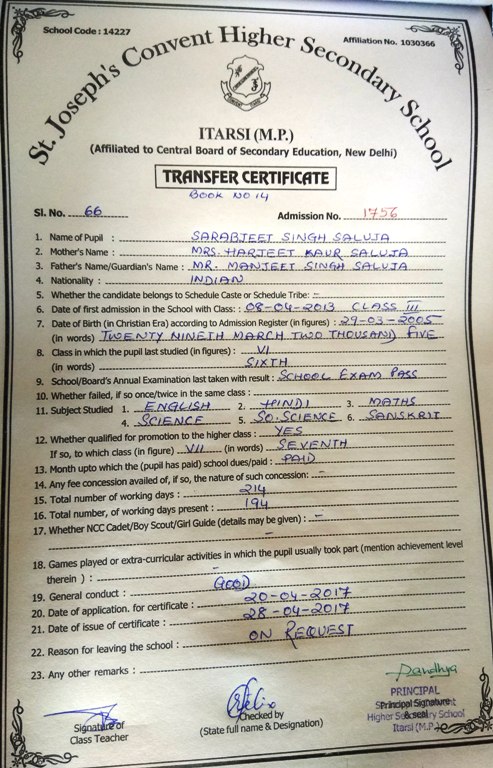 School Code : 14227
Affiliation No. 1030366
St. Joseph's Convent Higher Secondary School
ITARSI (M.P.)
(Affiliated to Central Board of Secondary Education, New Delhi)
TRANSFER CERTIFICATE
BOOK NO 14
Sl. No. 66 Admission No. 1756
1. Name of Pupil : SARABJEET SINGH SALUJA
2. Mother's Name : MRS. HARJEET KAUR SALUJA
3. Father's Name/Guardian's Name : MR. MANJEET SINGH SALUJA
4. Nationality : INDIAN
5. Whether the candidate belongs to Schedule Caste or Schedule Tribe: -
6. Date of first admission in the School with Class : 08-04-2013 CLASS III
7. Date of Birth (in Christian Era) according to Admission Register (in figures) : 29-03-2005
(in words) TWENTY NINETH MARCH TWO THOUSAND FIVE
8. Class in which the pupil last studied (in figures) : VI
(in words) SIXTH
9. School/Board's Annual Examination last taken with result : SCHOOL EXAM PASS
10. Whether failed, if so once/twice in the same class : -
11. Subject Studied 1. ENGLISH 2. HINDI 3. MATHS
4. SCIENCE 5. SO.SCIENCE 6. SANSKRIT
12. Whether qualified for promotion to the higher class : YES
If so, to which class (in figure) VII (in words) SEVENTH
13. Month upto which the (pupil has paid) school dues/paid : PAID
14. Any fee concession availed of, if so, the nature of such concession: -
15. Total number of working days : 214
16. Total, number of working days present : 194
17. Whether NCC Cadet/Boy Scout/Girl Guide (details may be given) : -
18. Games played or extra-curricular activities in which the pupil usually took part (mention achievement level
therein ) : -
19. General conduct : GOOD
20. Date of application. for certificate : 20-04-2017
21. Date of issue of certificate : 28-04-2017
22. Reason for leaving the school : ON REQUEST
23. Any other remarks :
Signature of
Class Teacher
Checked by
(State full name & Designation)
PRINCIPAL
Principal Signature
& seal
Higher Secondary School
Itarsi (M.P.)